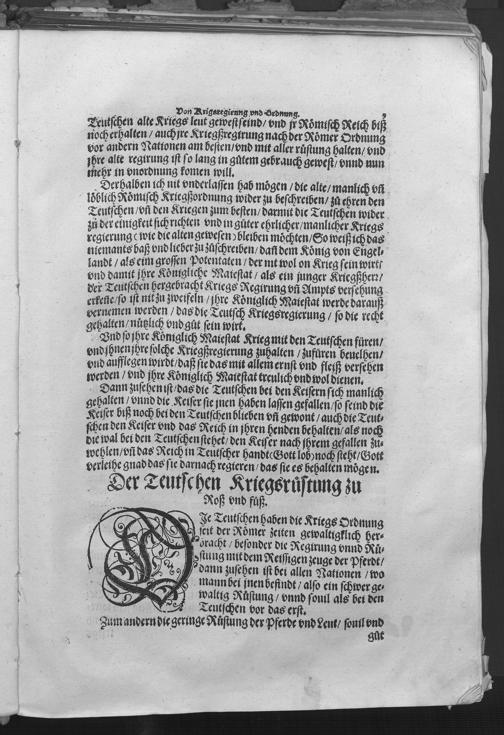 Von Krigsregierung vnd Ordnung.
Teutschen alte Kriegs leut gewest seind / vnd jr Römisch Reich biß
noch erhalten / auch jre Kriegßregirung nach der Römer Ordnung
vor andern Nationen am besten / vnd mit aller rüstung halten / vnd
jhre alte regirung ist so lang in gůtem gebrauch gewest / vnnd nun
mehr in vnordnung komen will.
Derhalben ich nit vnderlassen hab mögen / die alte / manlich vñ
löblich Römisch Kriegßordnung wider zu beschreiben / zů ehren den
Teutschen / vñ den Kriegen zum besten / darmit die Teutschen wider
zů der einigkeit sich richten vnd in gůter ehrlicher / manlicher Kriegs
regierung (wie die alten gewesen) bleiben möchten / So weiß ich das
niemants baß vnd lieber zů zůschreiben / dañ dem König von Engel-
landt / als ein grossen Potentaten / der mit wol on Krieg sein wirt /
vnd damit jhre Königliche Maiestat / als ein junger Kriegßherr /
der Teutschen hergebracht Kriegs Regirung vñ Ampts versehung
erkeñe / so ist nit zů zweifeln / jhre Königlich Maiestat werde darauß
vernemen werden / das die Teutsch Kriegsregierung / so die recht
gehalten / nützlich vnd gůt sein wirt.
Vnd so jhre Königlich Maiestat Krieg mit den Teutschen füren /
vnd jhnen jhre solche Kriegßregierung zuhalten / zufüren beuelhen /
vnd aufflegen wirdt / daß sie das mit allem ernst vnd fleiß versehen
werden / vnd jhre Königlich Maiestat treulich vnd wol dienen.
Dann zusehen ist / das die Teutschen bei den Keisern sich manlich
gehalten / vnnd die Keiser sie jnen haben lassen gefallen / so seind die
Keiser biß noch bei den Teutschen blieben vñ gewont / auch die Teut-
schen den Keiser vnd das Reich in jhren henden behalten / als noch
die wal bei den Teutschen stehet / den Keiser nach jhrem gefallen zu-
wehlen / vñ das Reich in Teutscher handt (Gott lob) noch steht / Gott
verleihe gnad das sie darnach regieren / das sie es behalten mögen.
Der Teutschen Kriegsrüstung zu
Roß vnd fůß.
DJe Teutschen haben die Kriegs Ordnung
seit der Römer zeiten gewaltigklich her-
bracht / besonder die Regirung vnnd Rü-
stung mit dem Reissigen zeuge der Pferdt /
dann zusehen ist bei allen Nationen / wo
mann bei jnen befindt / also ein schwer ge-
waltig Rüstung / vnnd souil als bei den
Teutschen vor das erst.
Zum andern die geringe Rüstung der Pferde vnd Leut / souil vnd
gůt